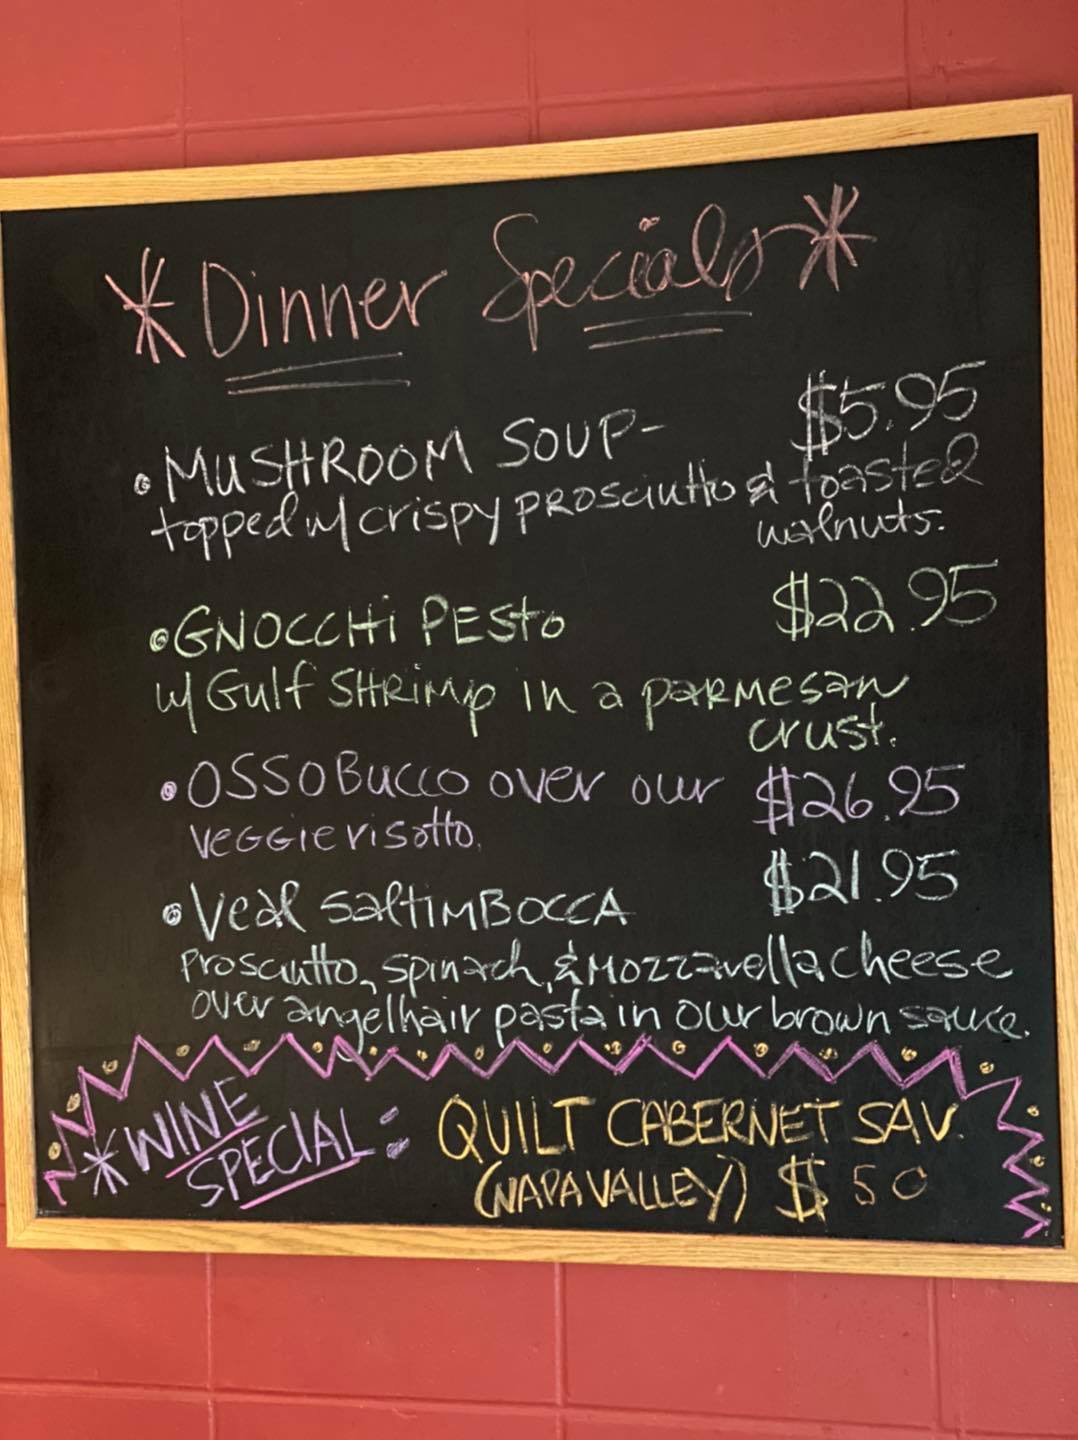 *Dinner Specials*
• MUSHROOM SOUP- $5.95
topped w/ crispy PROSCIUTTO & toasted
walnuts.
• GNOCCHI PESTO $22.95
w/ Gulf SHRIMP in a PARMESAN
crust.
• OSSO BUCCO over our $26.95
VEGGIE risotto.
• Veal SALTIMBOCCA $21.95
Prosciutto, spinach, & Mozzarella cheese
over angelhair pasta in our brown sauce.
*WINE QUILT CABERNET SAV.
SPECIAL: (NAPA VALLEY) $50